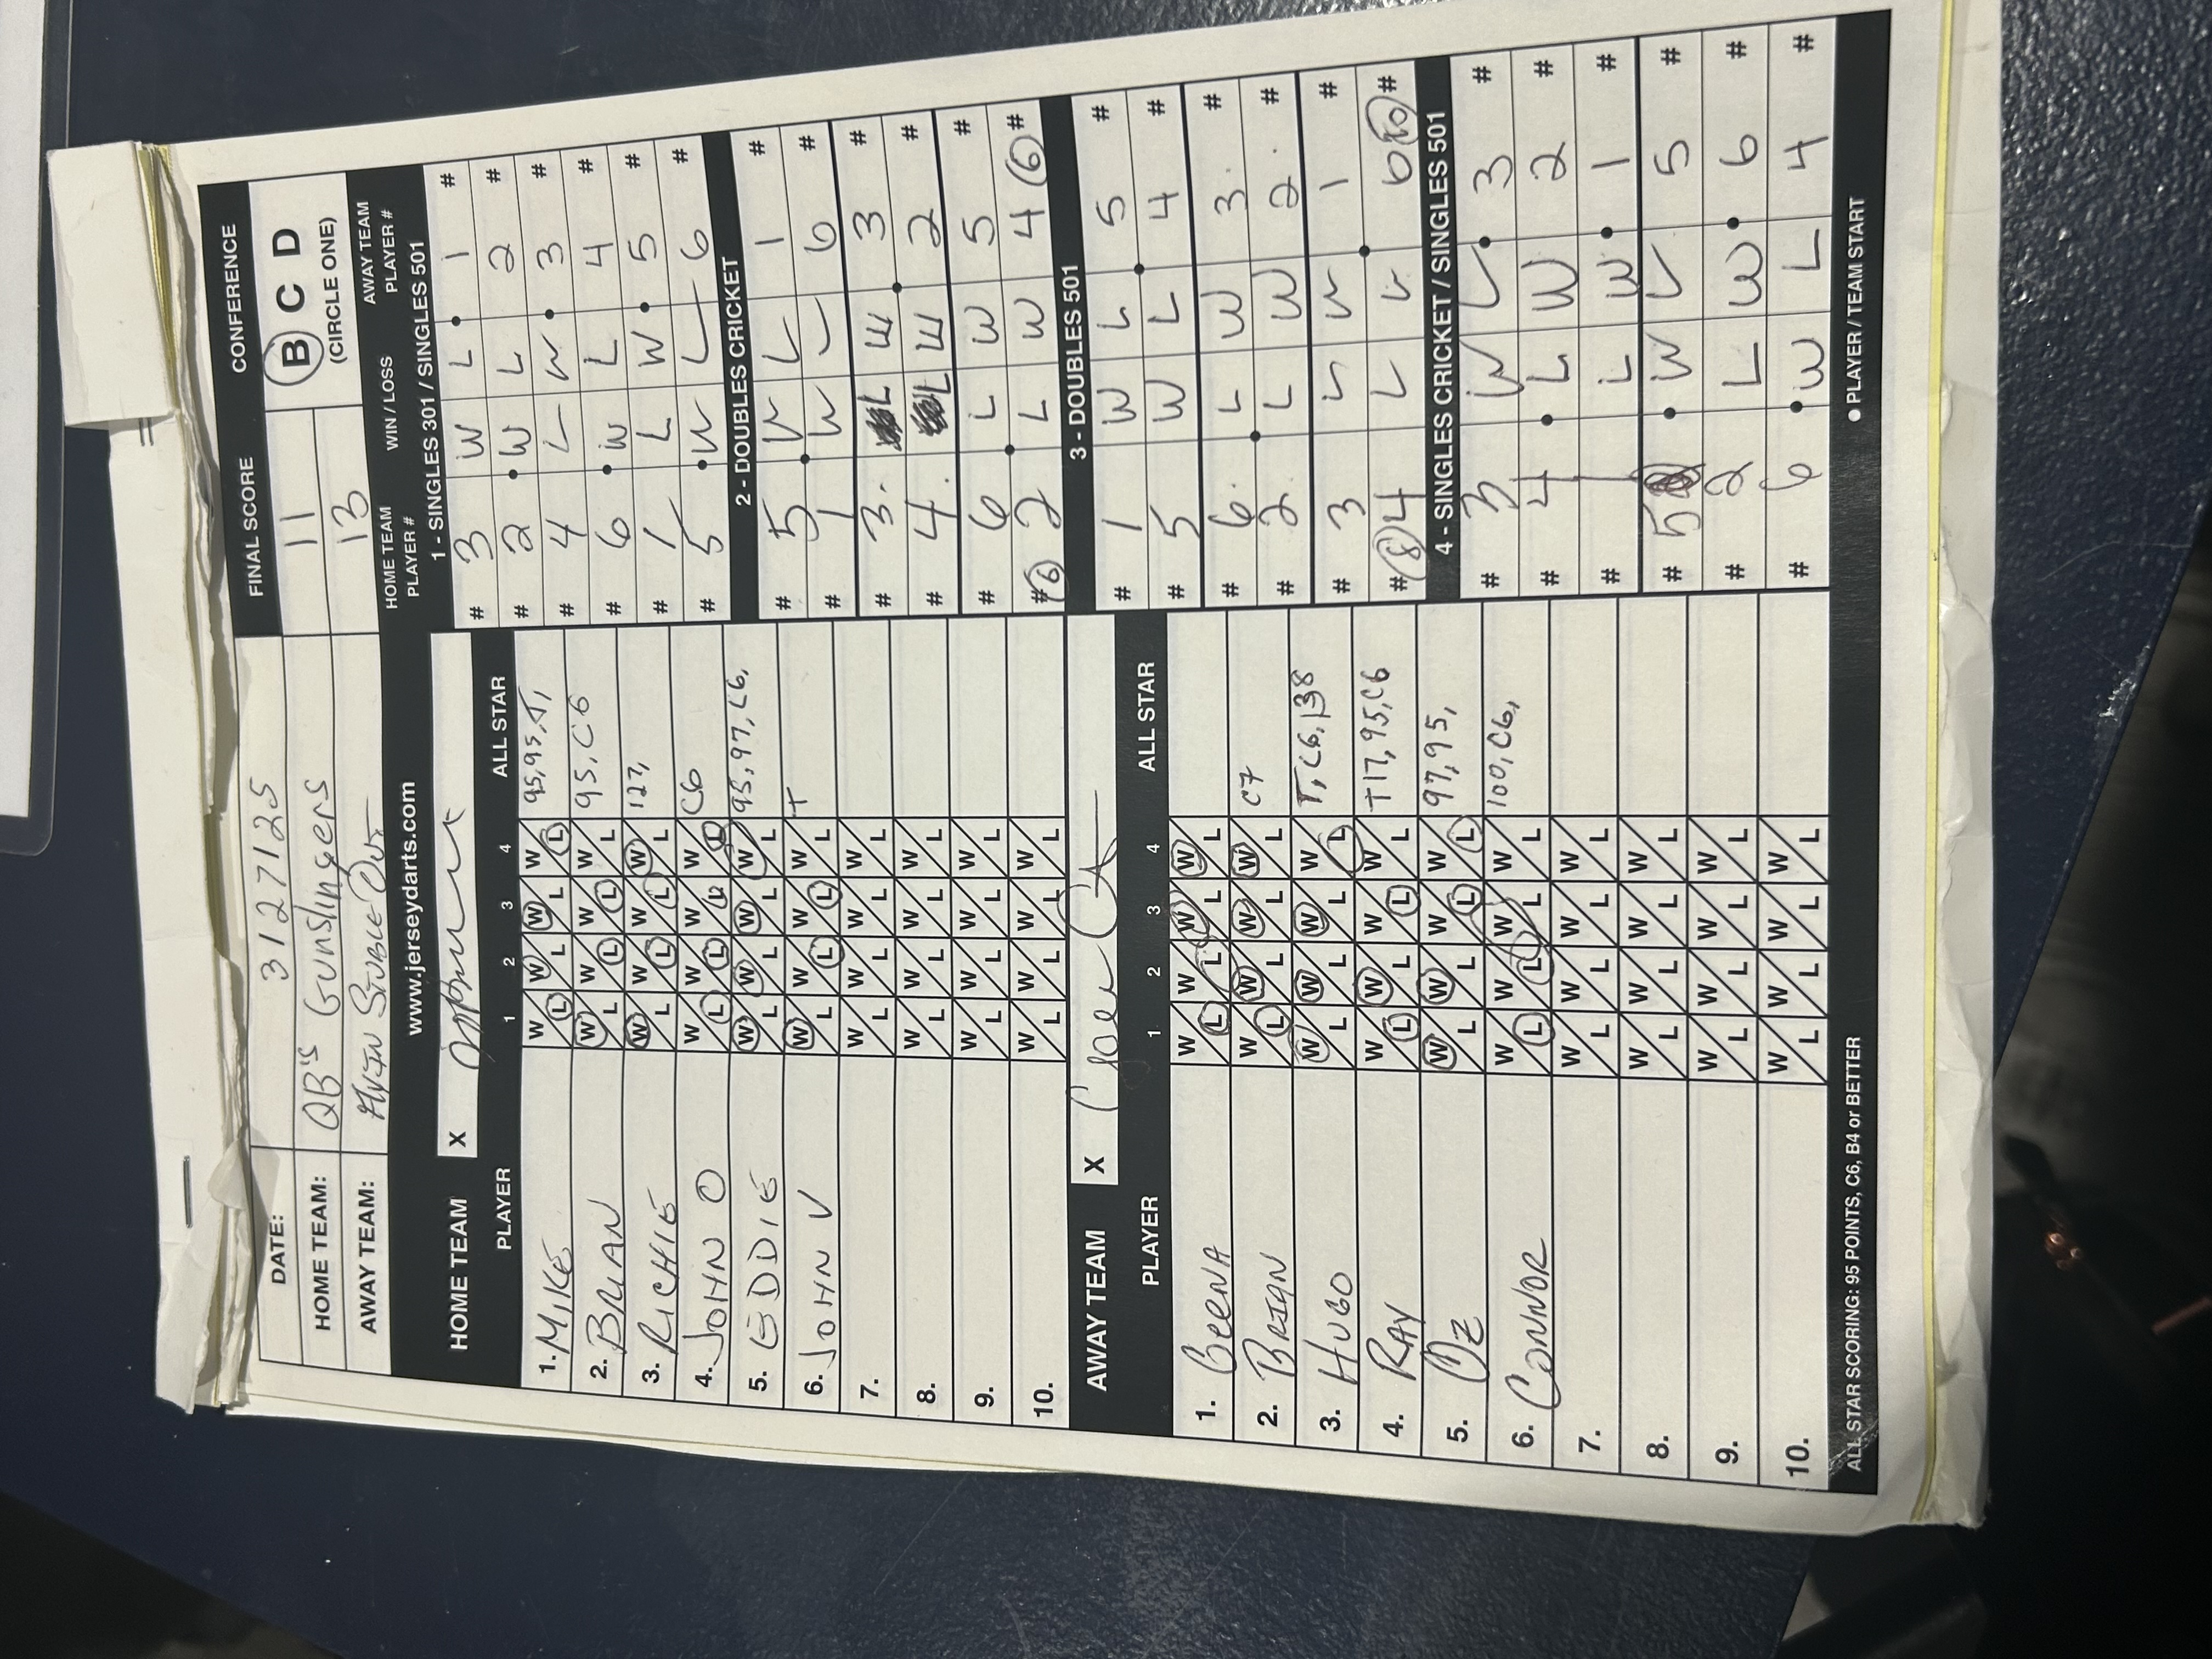 DATE: 3/27/25 FINAL SCORE CONFERENCE
HOME TEAM: QB's Gunslingers 11 B C D
AWAY TEAM: 13 (CIRCLE ONE)
www.jerseydarts.com
HOME TEAM PLAYER # WIN / LOSS AWAY TEAM PLAYER #
HOME TEAM X
PLAYER 1 2 3 4 ALL STAR
1. MIKE W L W L W L W L 95, 95, T,
2. BRIAN W L W L W L W L 95, C6
3. RICHIE W L W L W L W L 127,
4. JOHN O W L W L W L W L C6
5. EDDIE W L W L W L W L 95, 97, C6,
6. JOHN V W L W L W L W L T
7. W L W L W L W L
8. W L W L W L W L
9. W L W L W L W L
10. W L W L W L W L
AWAY TEAM X
PLAYER 1 2 3 4 ALL STAR
1. GEENA W L W L W L W L
2. BRIAN W L W L W L W L C7
3. HUGO W L W L W L W L T, C6, 138
4. RAY W L W L W L W L T17, 95, C6
5. OZ W L W L W L W L 97, 95,
6. CONNOR W L W L W L W L 100, C6,
7. W L W L W L W L
8. W L W L W L W L
9. W L W L W L W L
10. W L W L W L W L
ALL STAR SCORING: 95 POINTS, C6, B4 or BETTER
1 - SINGLES 301 / SINGLES 501
# 3 W L 1 #
# 2 W L 2 #
# 4 L W 3 #
# 6 W L 4 #
# 1 L W 5 #
# 5 W L 6 #
2 - DOUBLES CRICKET
# 5 W L 1 #
# 1 W L 6 #
# 3 L W 3 #
# 4 L W 2 #
# 6 L W 5 #
# 6 2 L W 4 6 #
3 - DOUBLES 501
# 1 W L 5 #
# 5 W L 4 #
# 6 L W 3 #
# 2 L W 2 #
# 3 L W 1 #
# 8 4 L W 6 10 #
4 - SINGLES CRICKET / SINGLES 501
# 3 W L 3 #
# 4 L W 2 #
# 1 L W 1 #
# 5 W L 5 #
# 2 L W 6 #
# 6 W L 4 #
● PLAYER / TEAM START